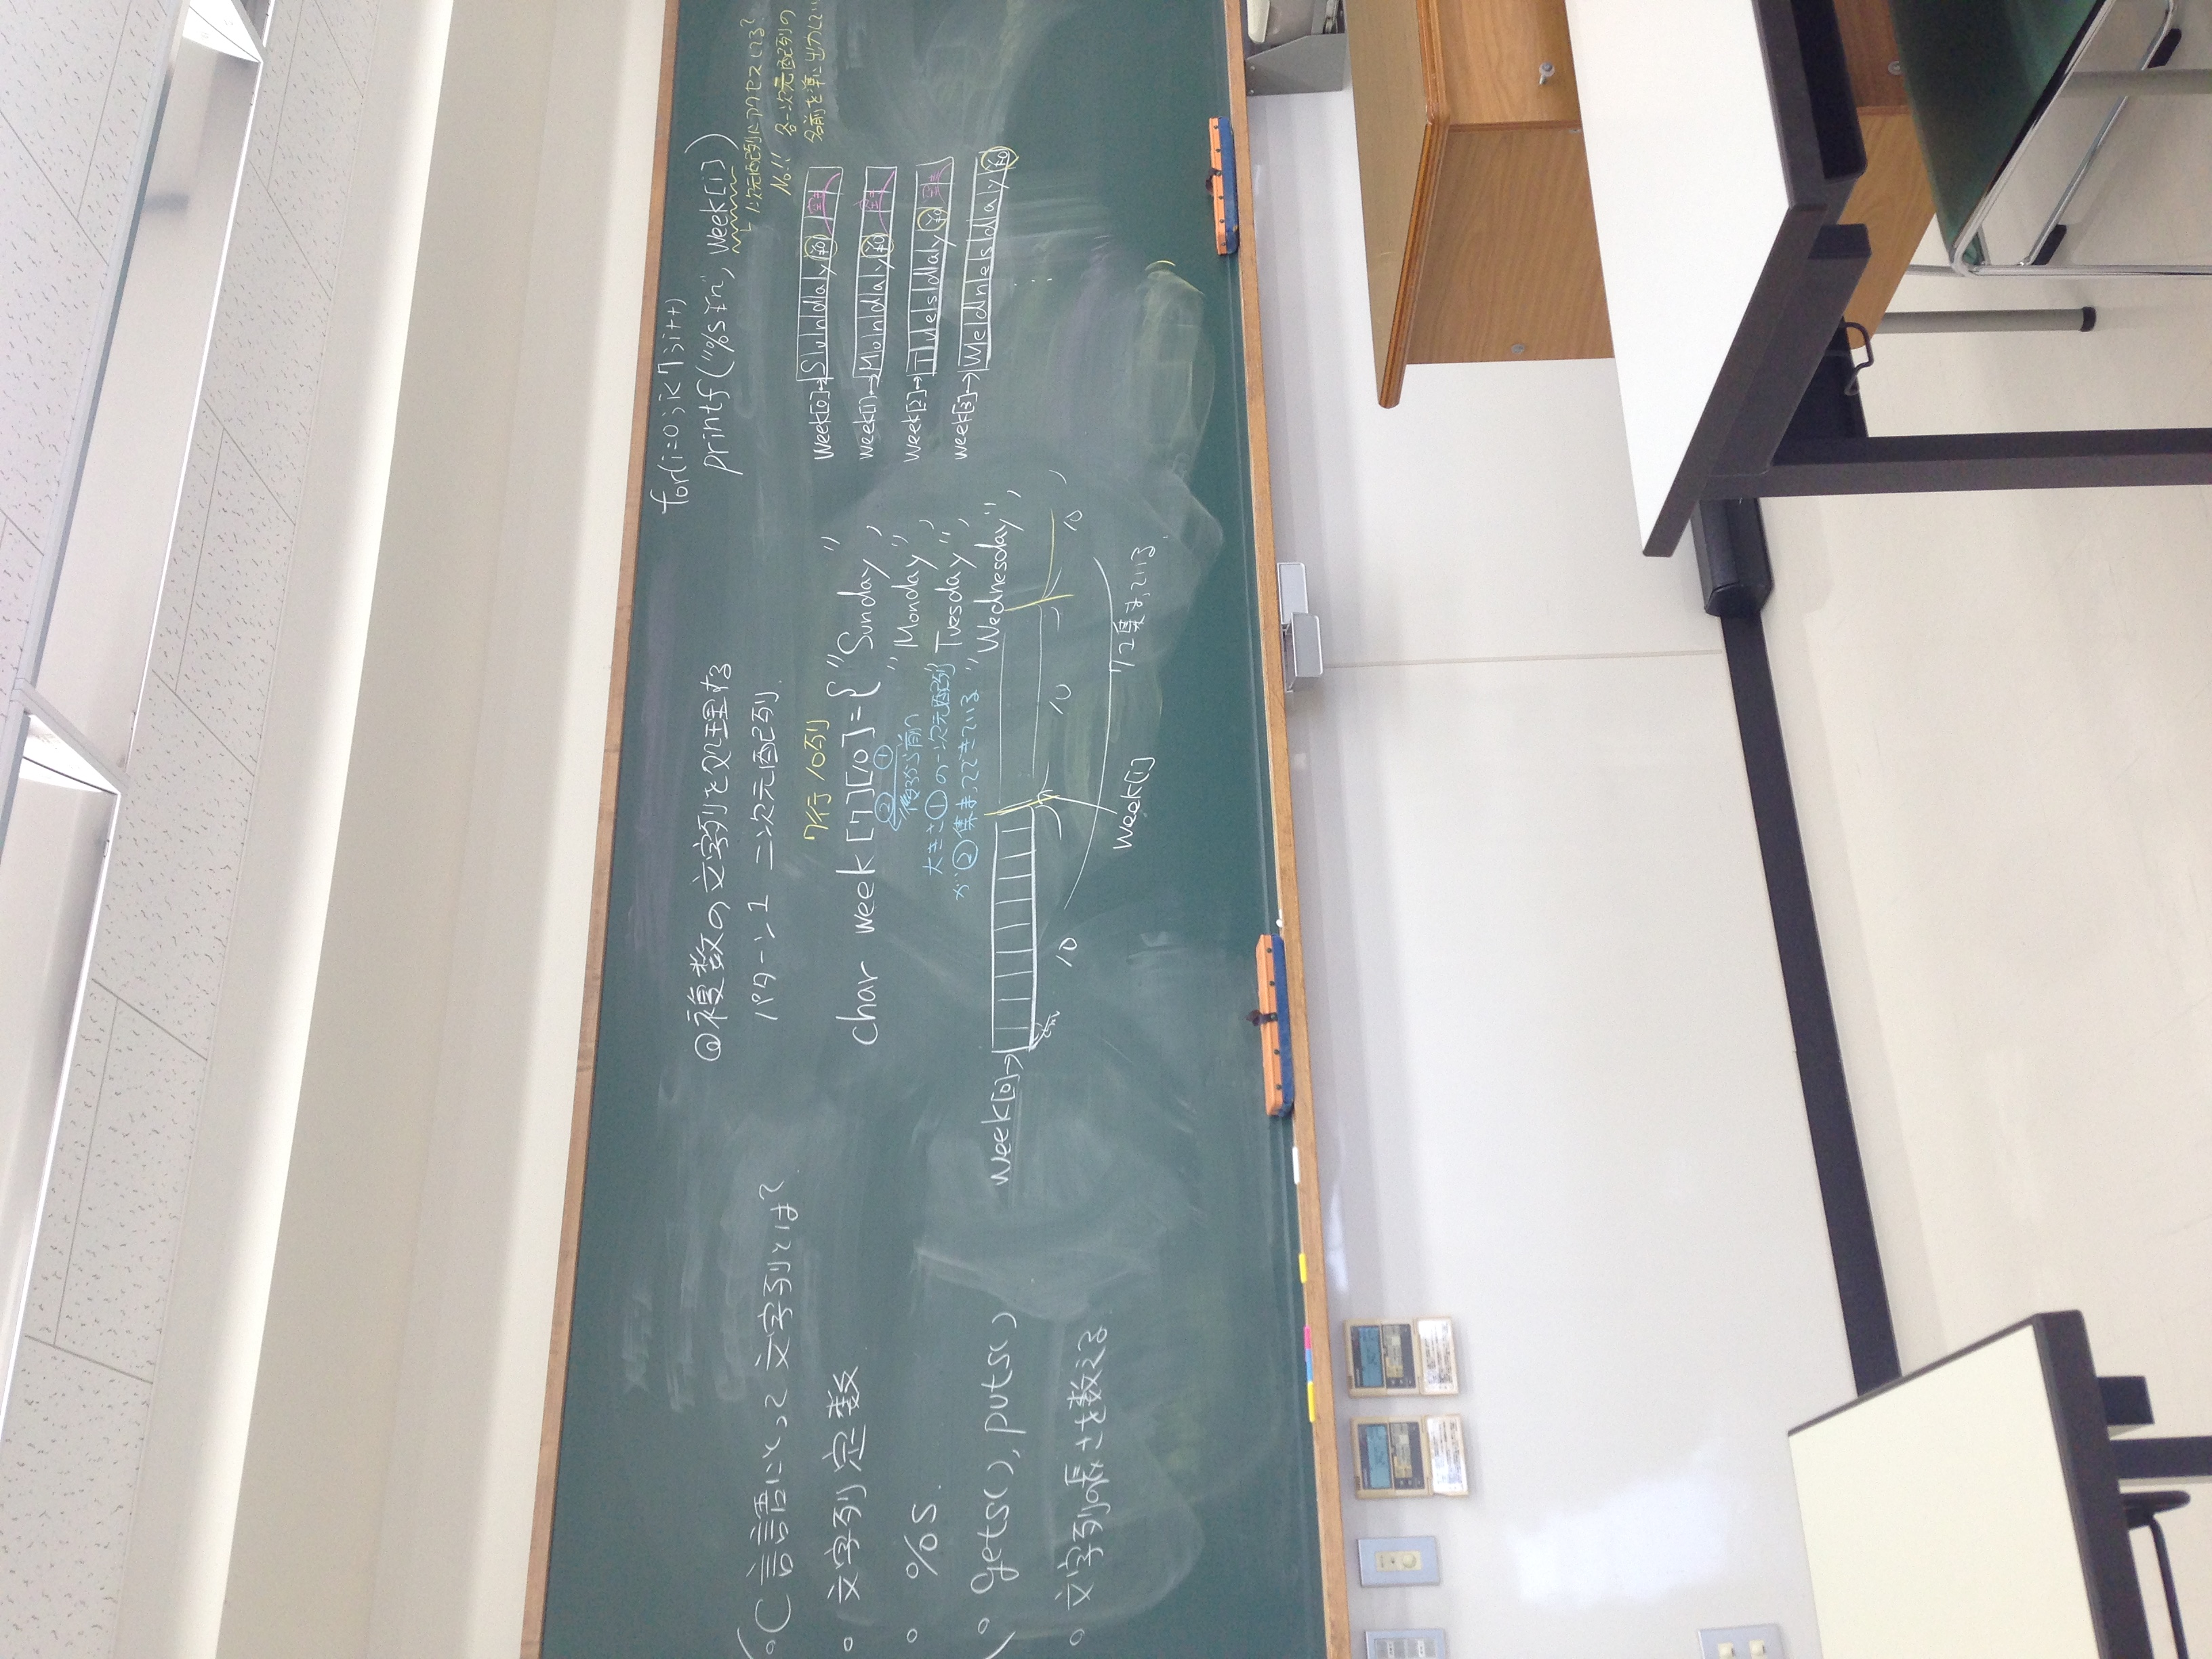 ○C言語にとって文字列とは?
○ 文字列定数
○ %s
○ gets(), puts()
○ 文字列の長さを数える
◎複数の文字列を処理する
パターン1 二次元配列
7行 10列
char week [7][10]={ "Sunday",
② ①
後ろから前へ
"Monday",
大きさ①の一次元配列
"Tuesday",
が②集まってできている
"Wednesday",
week[0]→
10
10
10
week[1]
7コ集まっている
for(i=0;i<7;i++)
printf("%s¥n", week[i])
1次元配列にアクセスしてる?
No!! 各一次元配列の
名前を準に出力してい
week[0]→ Sunday¥0
week[1]→ Monday¥0
week[2]→ Tuesday¥0
week[3]→ Wednesday¥0